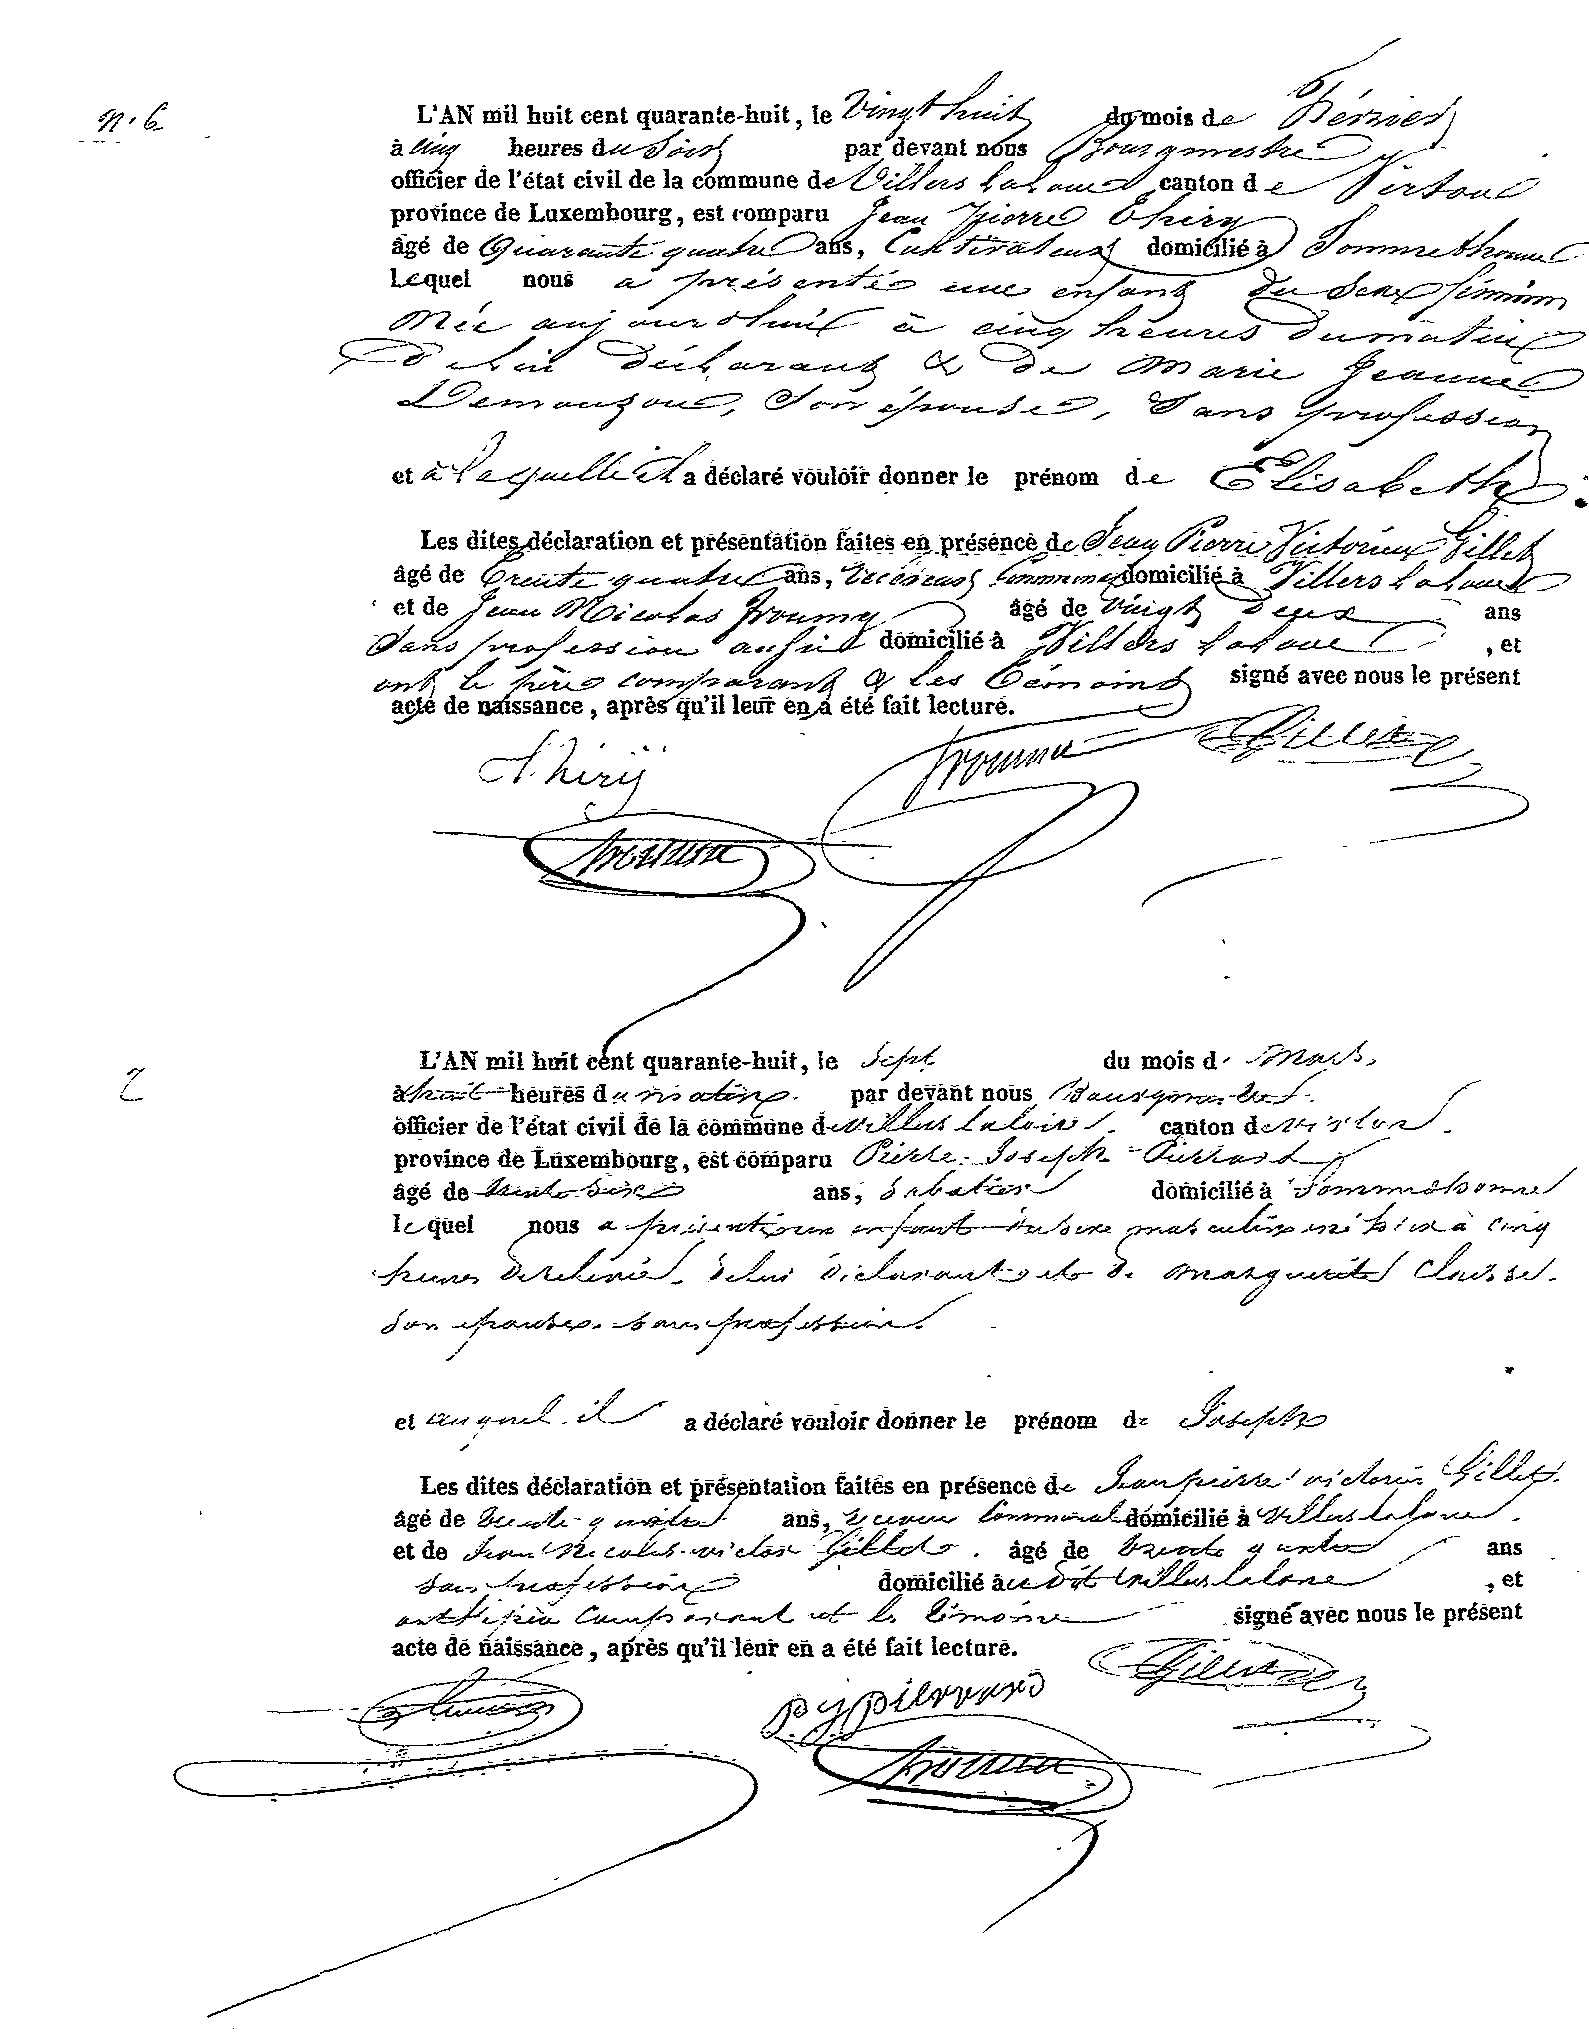 n. 6
L'AN mil huit cent quarante-huit, le Vingt huit du mois de Février
à cinq heures du Soir par devant nous Bourgmestre
officier de l'état civil de la commune de Villers la loue canton de Virton
province de Luxembourg, est comparu Jean Pierre Thiry
âgé de Quarante quatre ans, Cultivateur domicilié à Sommethonne
Lequel nous a présenté une enfant du Sexe féminin
Née aujourdhui à cinq heures du matin
de lui déclarant & de Marie Jeanne
Demouzon, Son épouse, Sans profession
et à laquelle il a déclaré vouloir donner le prénom de Elisabeth.
Les dites déclaration et présentation faites en présence de Jean Pierre Victorien Gillet
âgé de Trente quatre ans, receveur Communal domicilié à Villers la loue
et de Jean Nicolas Froumy âgé de vingt deux ans
Sans profession aussi domicilié à Villers la loue, et
ont le père comparant & les témoins signé avec nous le présent
acte de naissance, après qu'il leur en a été fait lecture.
Thirÿ
Gillet
7
L'AN mil huit cent quarante-huit, le Sept du mois de Mars.
à huit heures du matin. par devant nous Bourgmestre.
officier de l'état civil de la commune de villers laloue. canton de virton.
province de Luxembourg, est comparu Pierre Joseph Pierrard
âgé de trente six ans, Sabotier domicilié à Sommethonne
lequel nous a présenté un enfant du sexe masculin né hier à cinq
heures de relevé. de lui déclarant et de marguerite Claisse.
son epouse. sans profession.
et auquel il a déclaré vouloir donner le prénom de Joseph
Les dites déclaration et présentation faites en présence de Jean pierre victorien Gillet.
âgé de trente quatre ans, receveur Communal domicilié à villers laloue.
et de Jean Nicolas victor Gillet. âgé de trente quatre ans
sans profession domicilié au dit villers laloue, et
ont le père comparant et les témoins signé avec nous le présent
acte de naissance, après qu'il leur en a été fait lecture.
P J Pierrard
Gillet